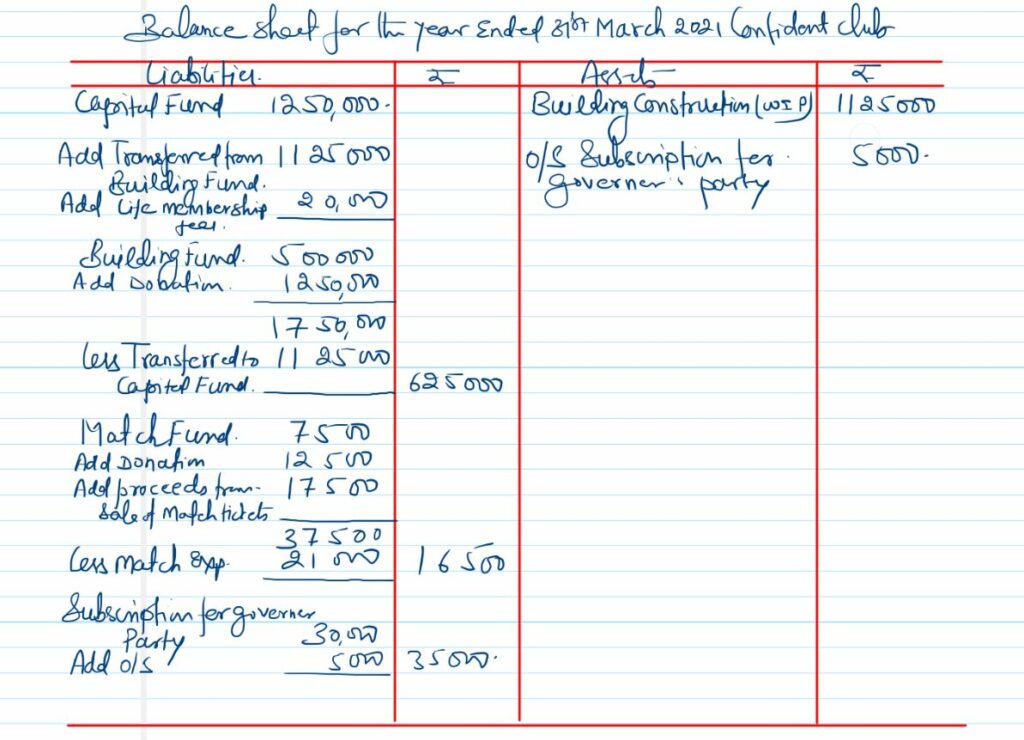 Balance sheet for the year Ended 31st March 2021 Confident Club
Liabilities. ₹ Assets ₹
Capital Fund 1250,000. Building Construction (WIP) 1125000
Add Transferred from 1125000 O/S Subscription for 5000.
Building Fund. governer's party
Add Life membership 20,000
fees.
Building Fund. 500000
Add Donation. 1250,000
1750,000
Less Transferred to 1125000
Capital Fund. 625000
Match Fund. 7500
Add Donation 12500
Add proceeds from 17500
Sale of Match tickets
37500
Less Match Exp. 21000 16500
Subscription for governer
Party 30,000
Add O/S 5000 35000.